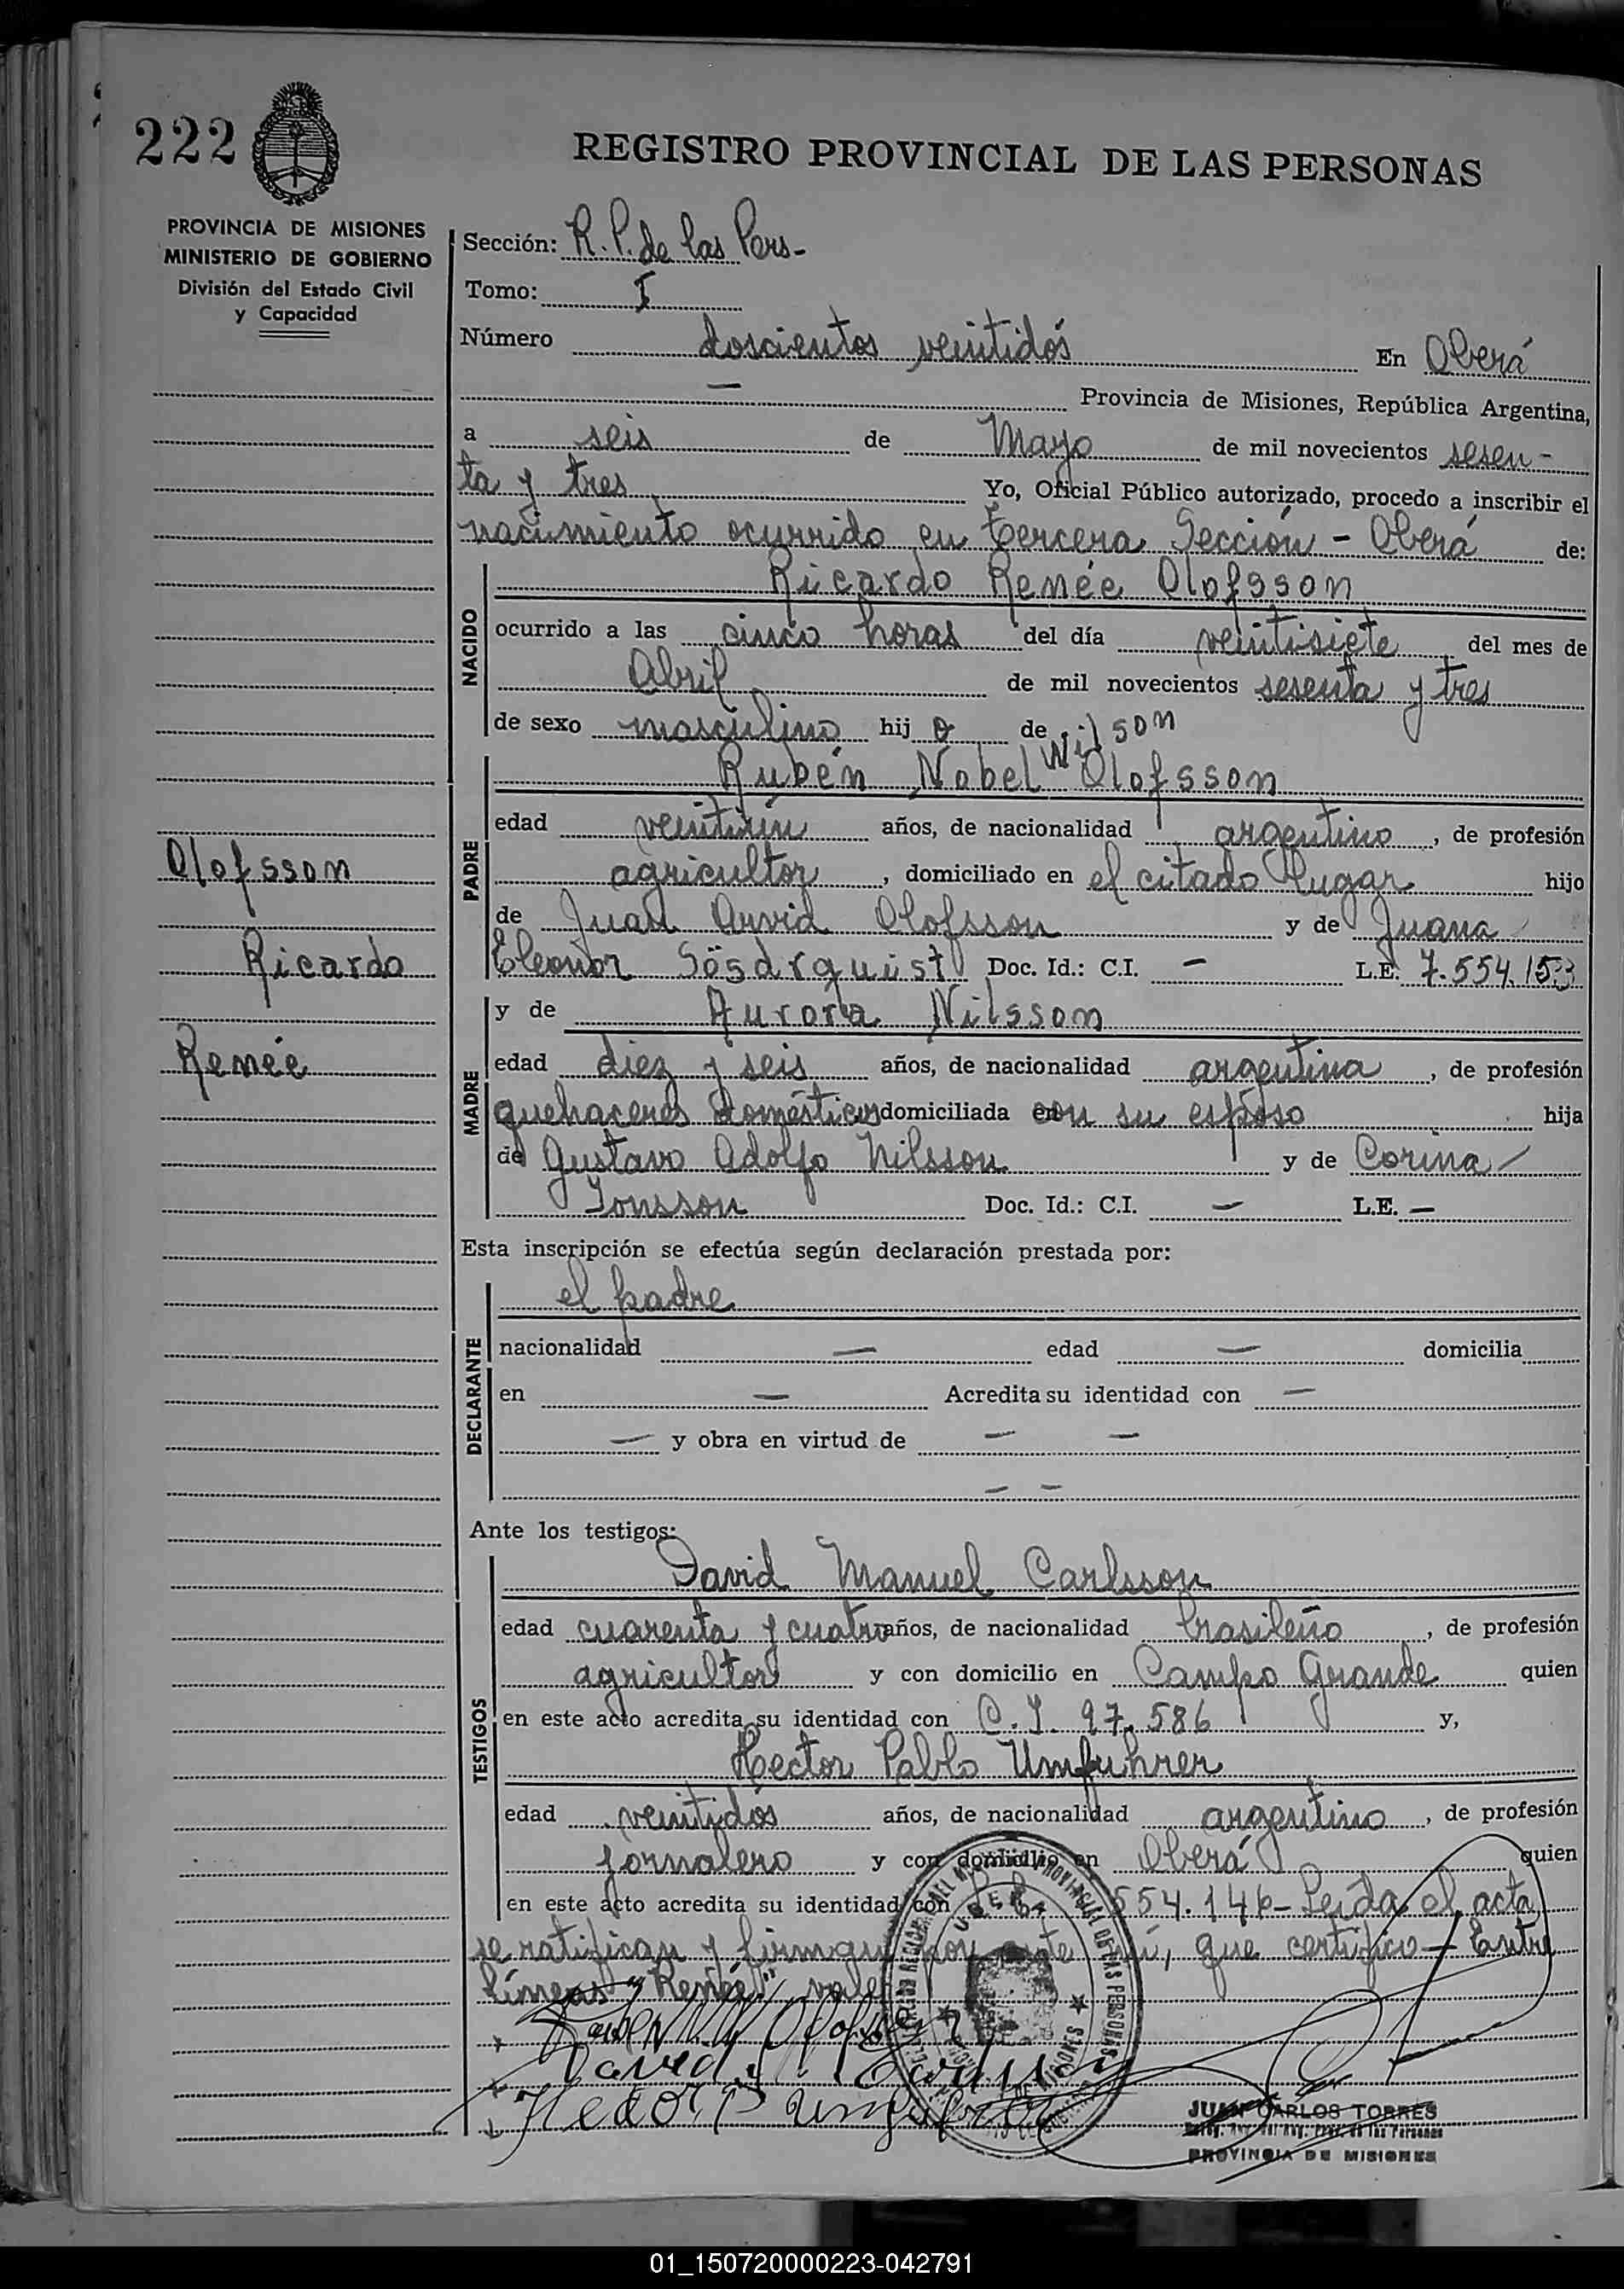 222
REGISTRO PROVINCIAL DE LAS PERSONAS
PROVINCIA DE MISIONES
MINISTERIO DE GOBIERNO
División del Estado Civil
y Capacidad
Sección: R. P. de las Pers-
Tomo: I
Número doscientos veintidós En Oberá
— Provincia de Misiones, República Argentina,
a seis de Mayo de mil novecientos sesen-
ta y tres Yo, Oficial Público autorizado, procedo a inscribir el
nacimiento ocurrido en tercera Sección - Oberá de:
NACIDO
Ricardo Renée Olofsson
ocurrido a las cinco horas del día veintisiete del mes de
Abril de mil novecientos sesenta y tres
de sexo masculino hijo de
Wilson
PADRE
Rubén Nobel Olofsson
edad veintiún años, de nacionalidad argentino, de profesión
agricultor, domiciliado en el citado lugar hijo
de Juan Arvid Olofsson y de Juana
Eleonor Sösdrquist Doc. Id.: C.I. — L.E. 7.554.153
Olofsson
Ricardo
Renée
MADRE
y de Aurora Nilsson
edad diez y seis años, de nacionalidad argentina, de profesión
quehaceres domésticos domiciliada en con su esposo hija
de Gustavo Adolfo Nilsson y de Corina
Jonsson Doc. Id.: C.I. — L.E. —
Esta inscripción se efectúa según declaración prestada por:
DECLARANTE
el padre
nacionalidad — edad — domicilia
en — Acredita su identidad con —
— y obra en virtud de — —
— —
Ante los testigos:
TESTIGOS
David Manuel Carlsson
edad cuarenta y cuatro años, de nacionalidad brasileño, de profesión
agricultor y con domicilio en Campo Grande quien
en este acto acredita su identidad con C.I. 97.586 y,
Hector Pablo Umfuhrer
edad veintidós años, de nacionalidad argentino, de profesión
jornalero y con domicilio en Oberá quien
en este acto acredita su identidad con 554.146- Leída el acta
se ratifican y firman por ante mí, que certifico - Entre
líneas "Renée" vale
OBERÁ
PROVINCIAL DE LAS PERSONAS
MISIONES
JUAN CARLOS TORRES
PROVINCIA DE MISIONES
01_150720000223-042791